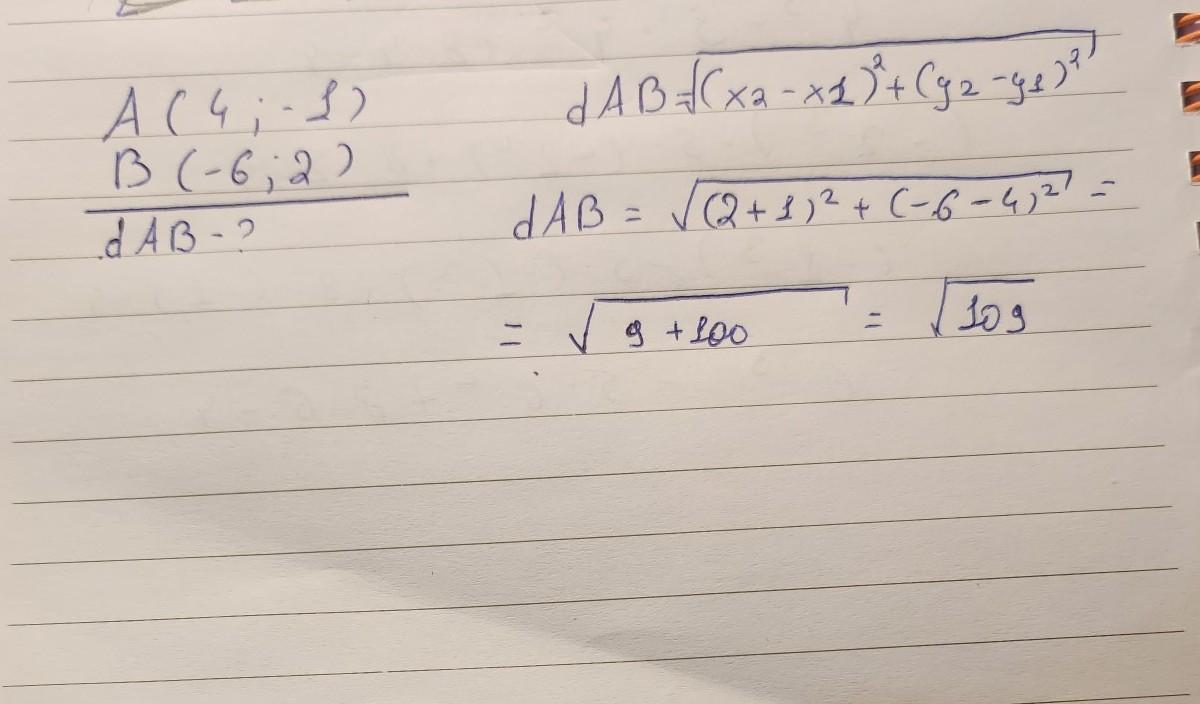 A (4 ; -1)
B (-6 ; 2)
dAB - ?
dAB = √(x2 - x1)² + (y2 - y1)²
dAB = √(2 + 1)² + (-6 - 4)² =
= √9 + 100 = √109